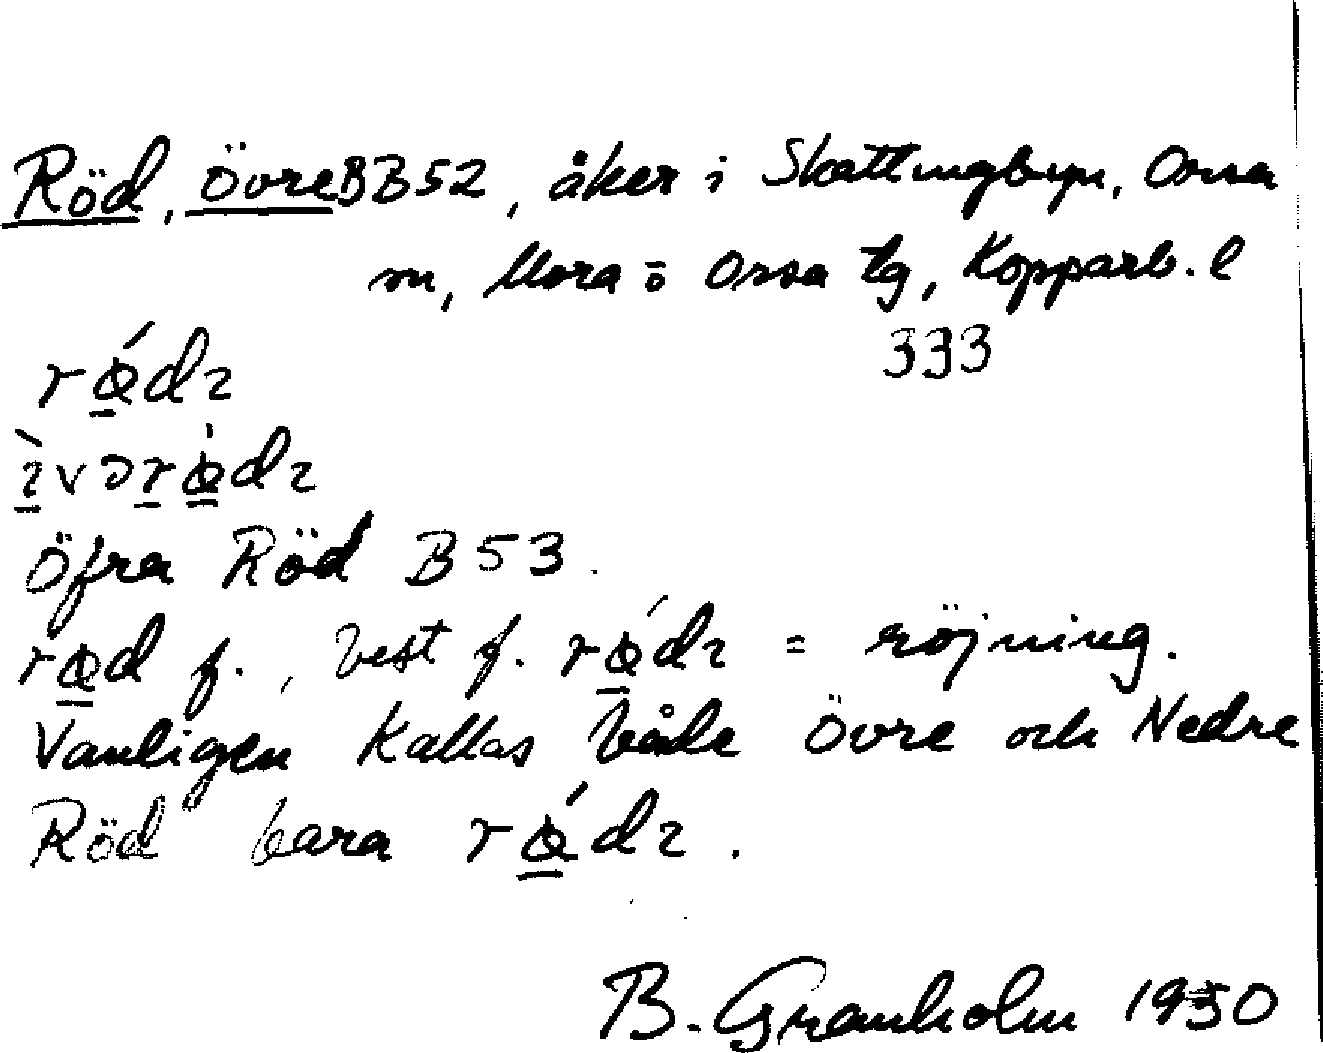 Röd, Övre BB52, åker i Skattungbyn, Orsa
sn, Mora o Orsa tg, Kopparb. l
333
rǿ̱dɩ
Öfra Röd B 53.
rø̱d f., best f. rǿ̱dɩ = röjning.
Vanligen kallas både Övre och Nedre
Röd bara rǿ̱dɩ.
B. Granholm 1930